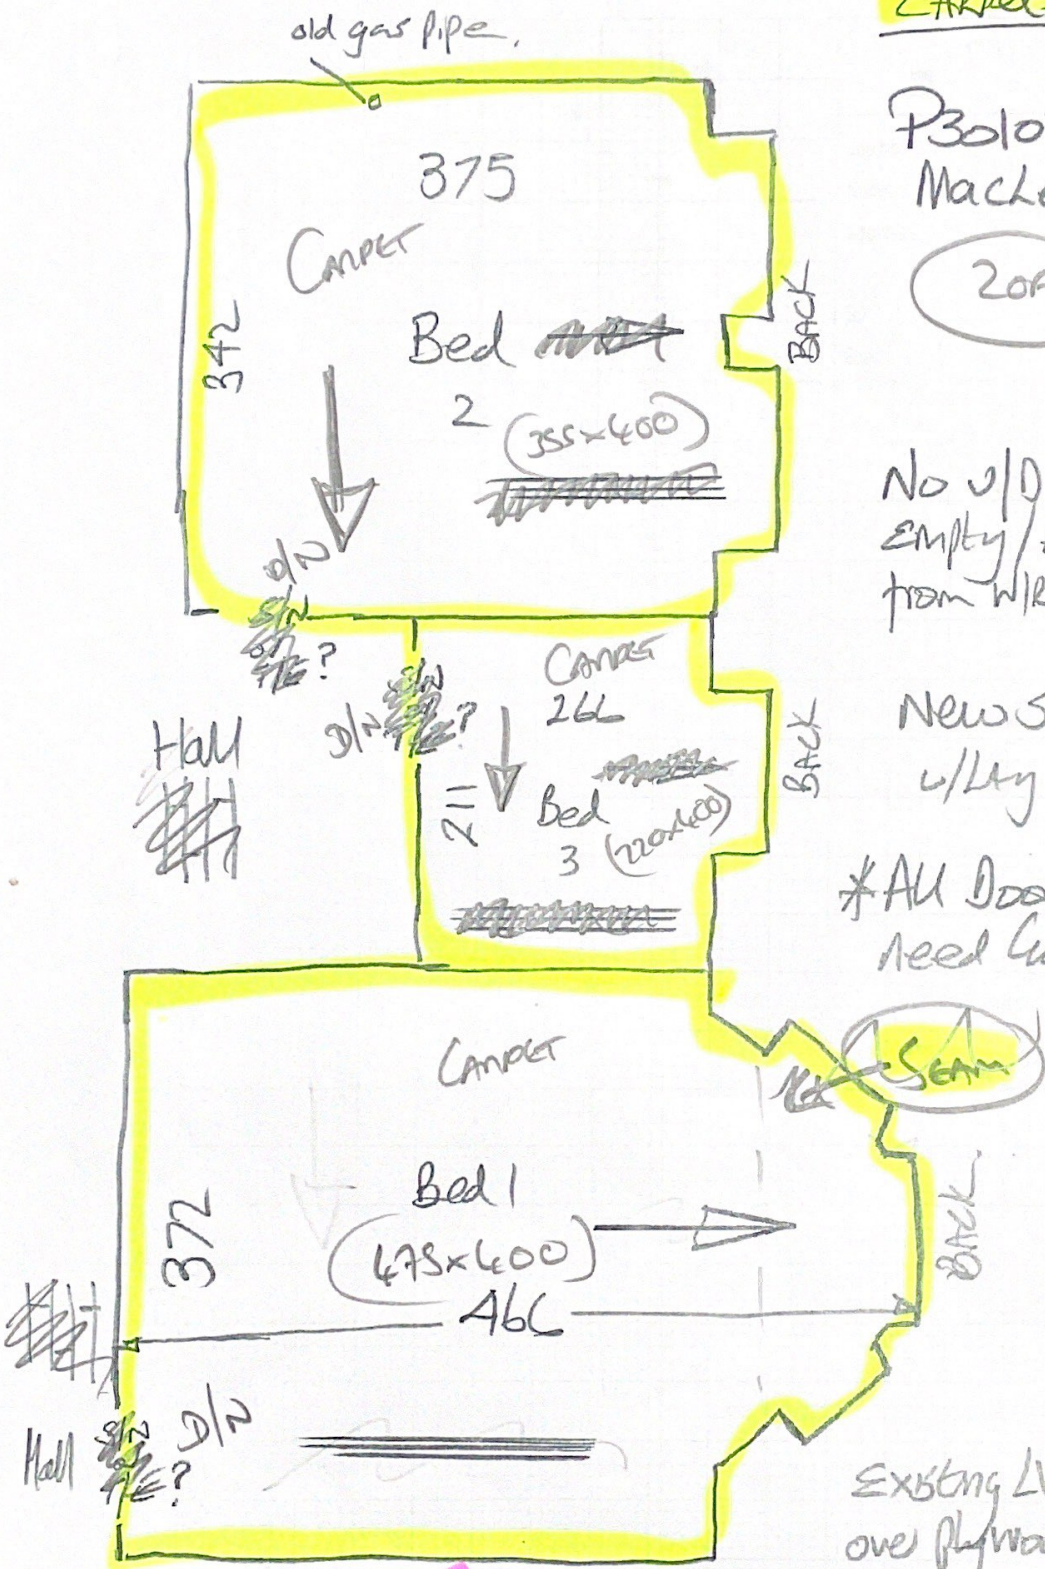 old gas pipe.
375
CARPET
342
Bed
2
(355x400)
BACK
D/N
?
Hall
CARPET
266
D/N
?
211
Bed
3
(220x400)
BACK
CARPET
Bed 1
(475x400)
466
372
BACK
SEAM
D/N
Hall
?
P3010
MacL
20
No U/D
Empty/
from W/R
New S
U/Lay
*All Doo
need Cu
Existing LV
over Plywo